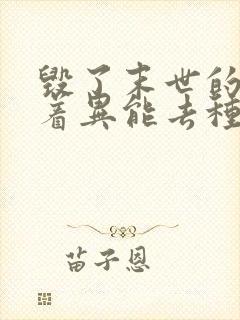 毀了末世的
着異能去種
苗子恩